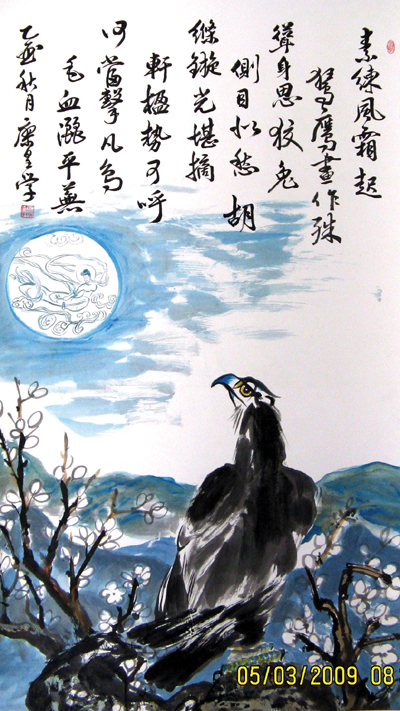 素練風霜起
蒼鷹畫作殊
聳身思狡兔
側目似愁胡
絛鏇光堪摘
軒楹勢可呼
何當擊凡鳥
毛血灑平蕪
乙酉秋月康学
05/03/2009 08